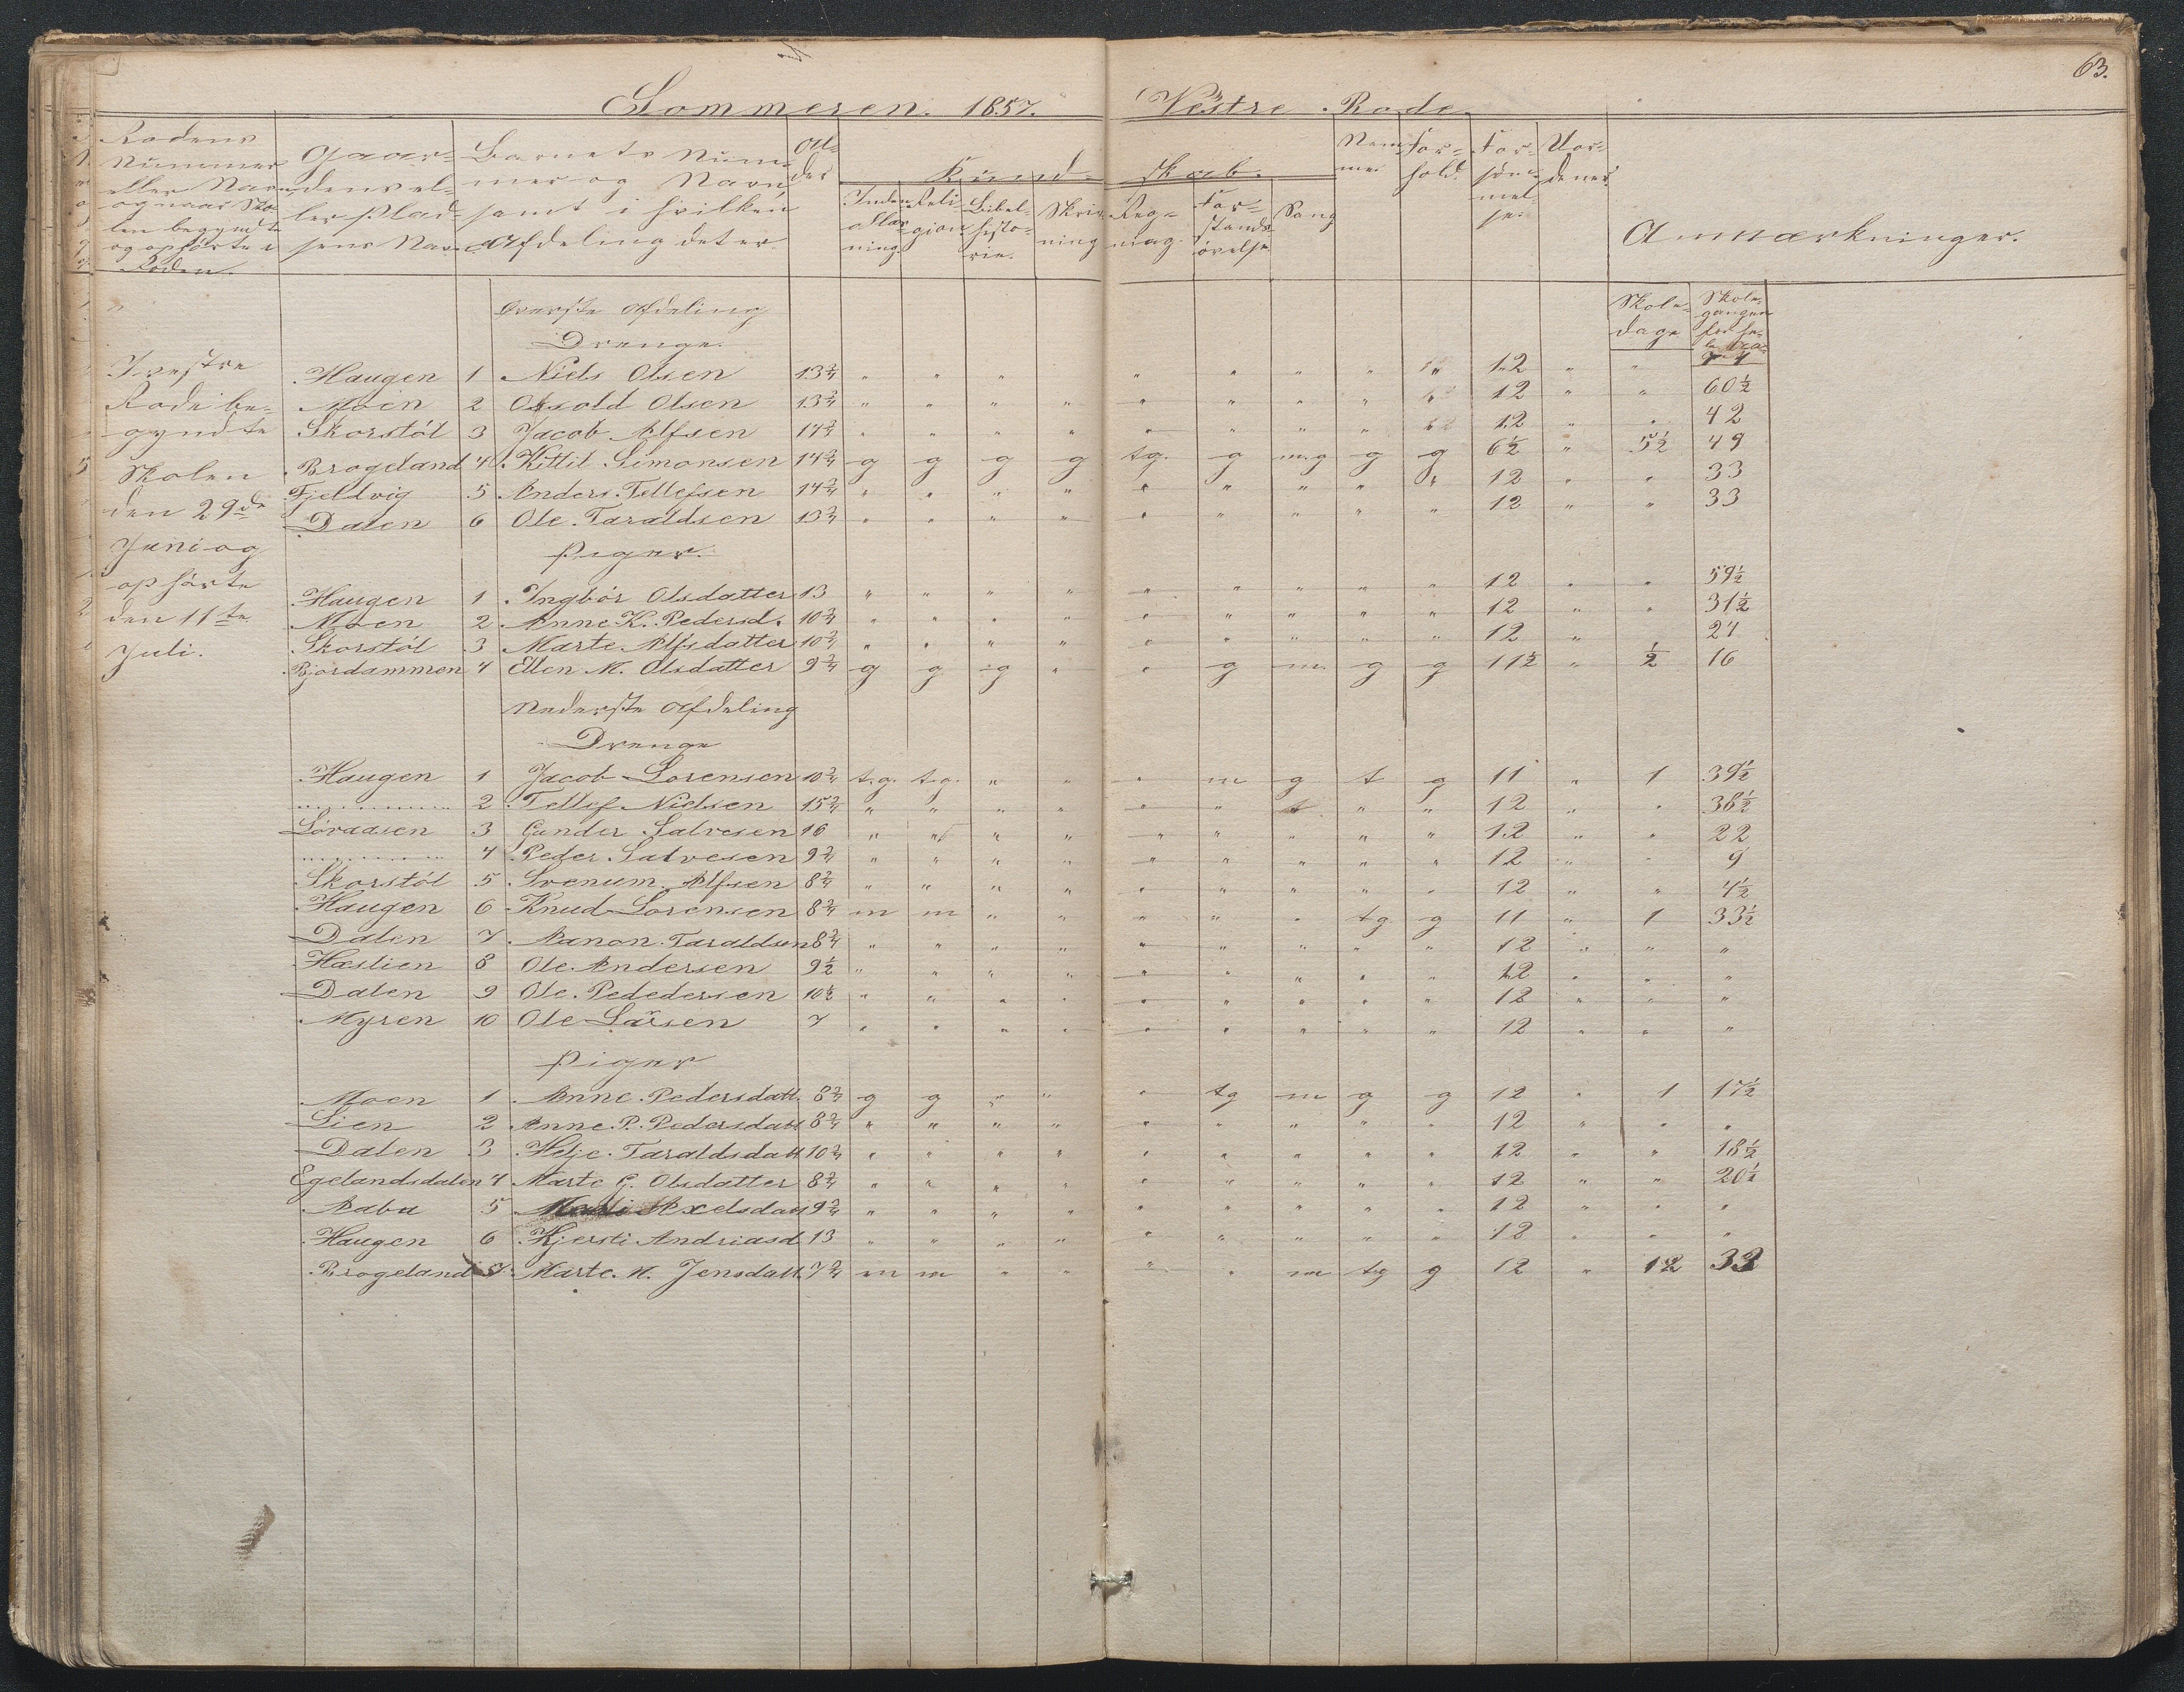 63.
Sommeren. 1857. Vestre Rode.
Rodens Nummer eller Navn og naar Skolen begyndte og ophørte i Roden.
Gaardens eller Pladsens Navn
Barnets Nummer og Navn samt i hvilken Afdeling det er
Alder
Kundskab.
Indenadlæsning
Religion
Bibelhistorie.
Skrivning
Regning.
Forstandsøvelse
Sang
Nemme
Forhold.
Forsømmelse.
Anmærkninger.
Skoledage
I vestre
Rode be-
gyndte
Skolen
den 29de
Juni og
ophørte
den 11te
Juli.
Øverste Afdeling
Drenge.
Haugen 1 Niels Olsen 13 3/4 " " " " " " " " 12 " "
Moen 2 Osvold Olsen 13 3/4 " " " " " " " " 12 " " 60 1/2
Skorstöl 3 Jacob Alfsen 14 3/4 " " " " " " " " 12 " " 42
Brogeland 4 Kittil Simonsen 14 3/4 g g g g tg. g mg g g 6 1/2 " 5 1/2 49
Fjeldvig 5 Anders Tellefsen 14 3/4 " " " " " " " " " 12 " " 33
Dalen 6 Ole Taraldsen 13 3/4 " " " " " " " " " 12 " " 33
Piger.
Haugen 1 Ingbör Olsdatter 13 " " " " " " " " " 12 " " 59 1/2
Moen 2 Anne K. Pedersd. 10 3/4 " " " " " " " " " 12 " " 31 1/2
Skorstöl 3 Marte Alfsdatter 10 3/4 " " " " " " " " " 12 " 24
Bjordammen 4 Ellen M. Olsdatter 9 3/4 g g g " " g m g g 11 1/2 " 1/2 16
Nederste Afdeling
Drenge
Haugen 1 Jacob Lorensen 10 3/4 tg. tg. " " " m g t g 11 " 1 39 1/2
" 2 Tellef Nielsen 15 3/4 " " " " " " t " " 12 " " 38 1/2
Löraasen 3 Gunder Salvesen 16 " " " " " " " " " 12 " " 22
" 4 Peder Salvesen 9 3/4 " " " " " " " " " 12 " " 9
Skorstöl 5 Svenum Alfsen 8 3/4 " " " " " " " " " 12 " " 4 1/2
Haugen 6 Knud Lorensen 8 3/4 m m " " " " " tg g 11 " 1 33 1/2
Dalen 7 Aanon Taraldsen 8 3/4 " " " " " " " " " 12 " " "
Hæslien 8 Ole Andersen 9 1/2 " " " " " " " " " 12 " " "
Dalen 9 Ole Pededersen 10 1/2 " " " " " " " " " 12 " " "
Myren 10 Ole Larsen 7 " " " " " " " " " 12 " " "
Piger
Moen 1 Anne Pedersdatt. 8 3/4 g g " " " tg m g g 12 " 1 17 1/2
Lien 2 Anne P. Pedersdatt 8 3/4 " " " " " " " " " 12 " " "
Dalen 3 Helje Taraldsdatt 10 3/4 " " " " " " " " " 12 " " 18 1/2
Egelandsdalen 4 Marte G. Olsdatter 8 3/4 " " " " " " " " " 12 " " 20 1/2
Aabu 5 Axelsdatt 9 3/4 " " " " " " " " " 12 " " "
Haugen 6 Kjersti Andriasd 13 " " " " " " " " " 12 " " "
Brogeland 7 Marte M. Jensdatt. 7 3/4 m m " " " " m tg g 12 " 12 33